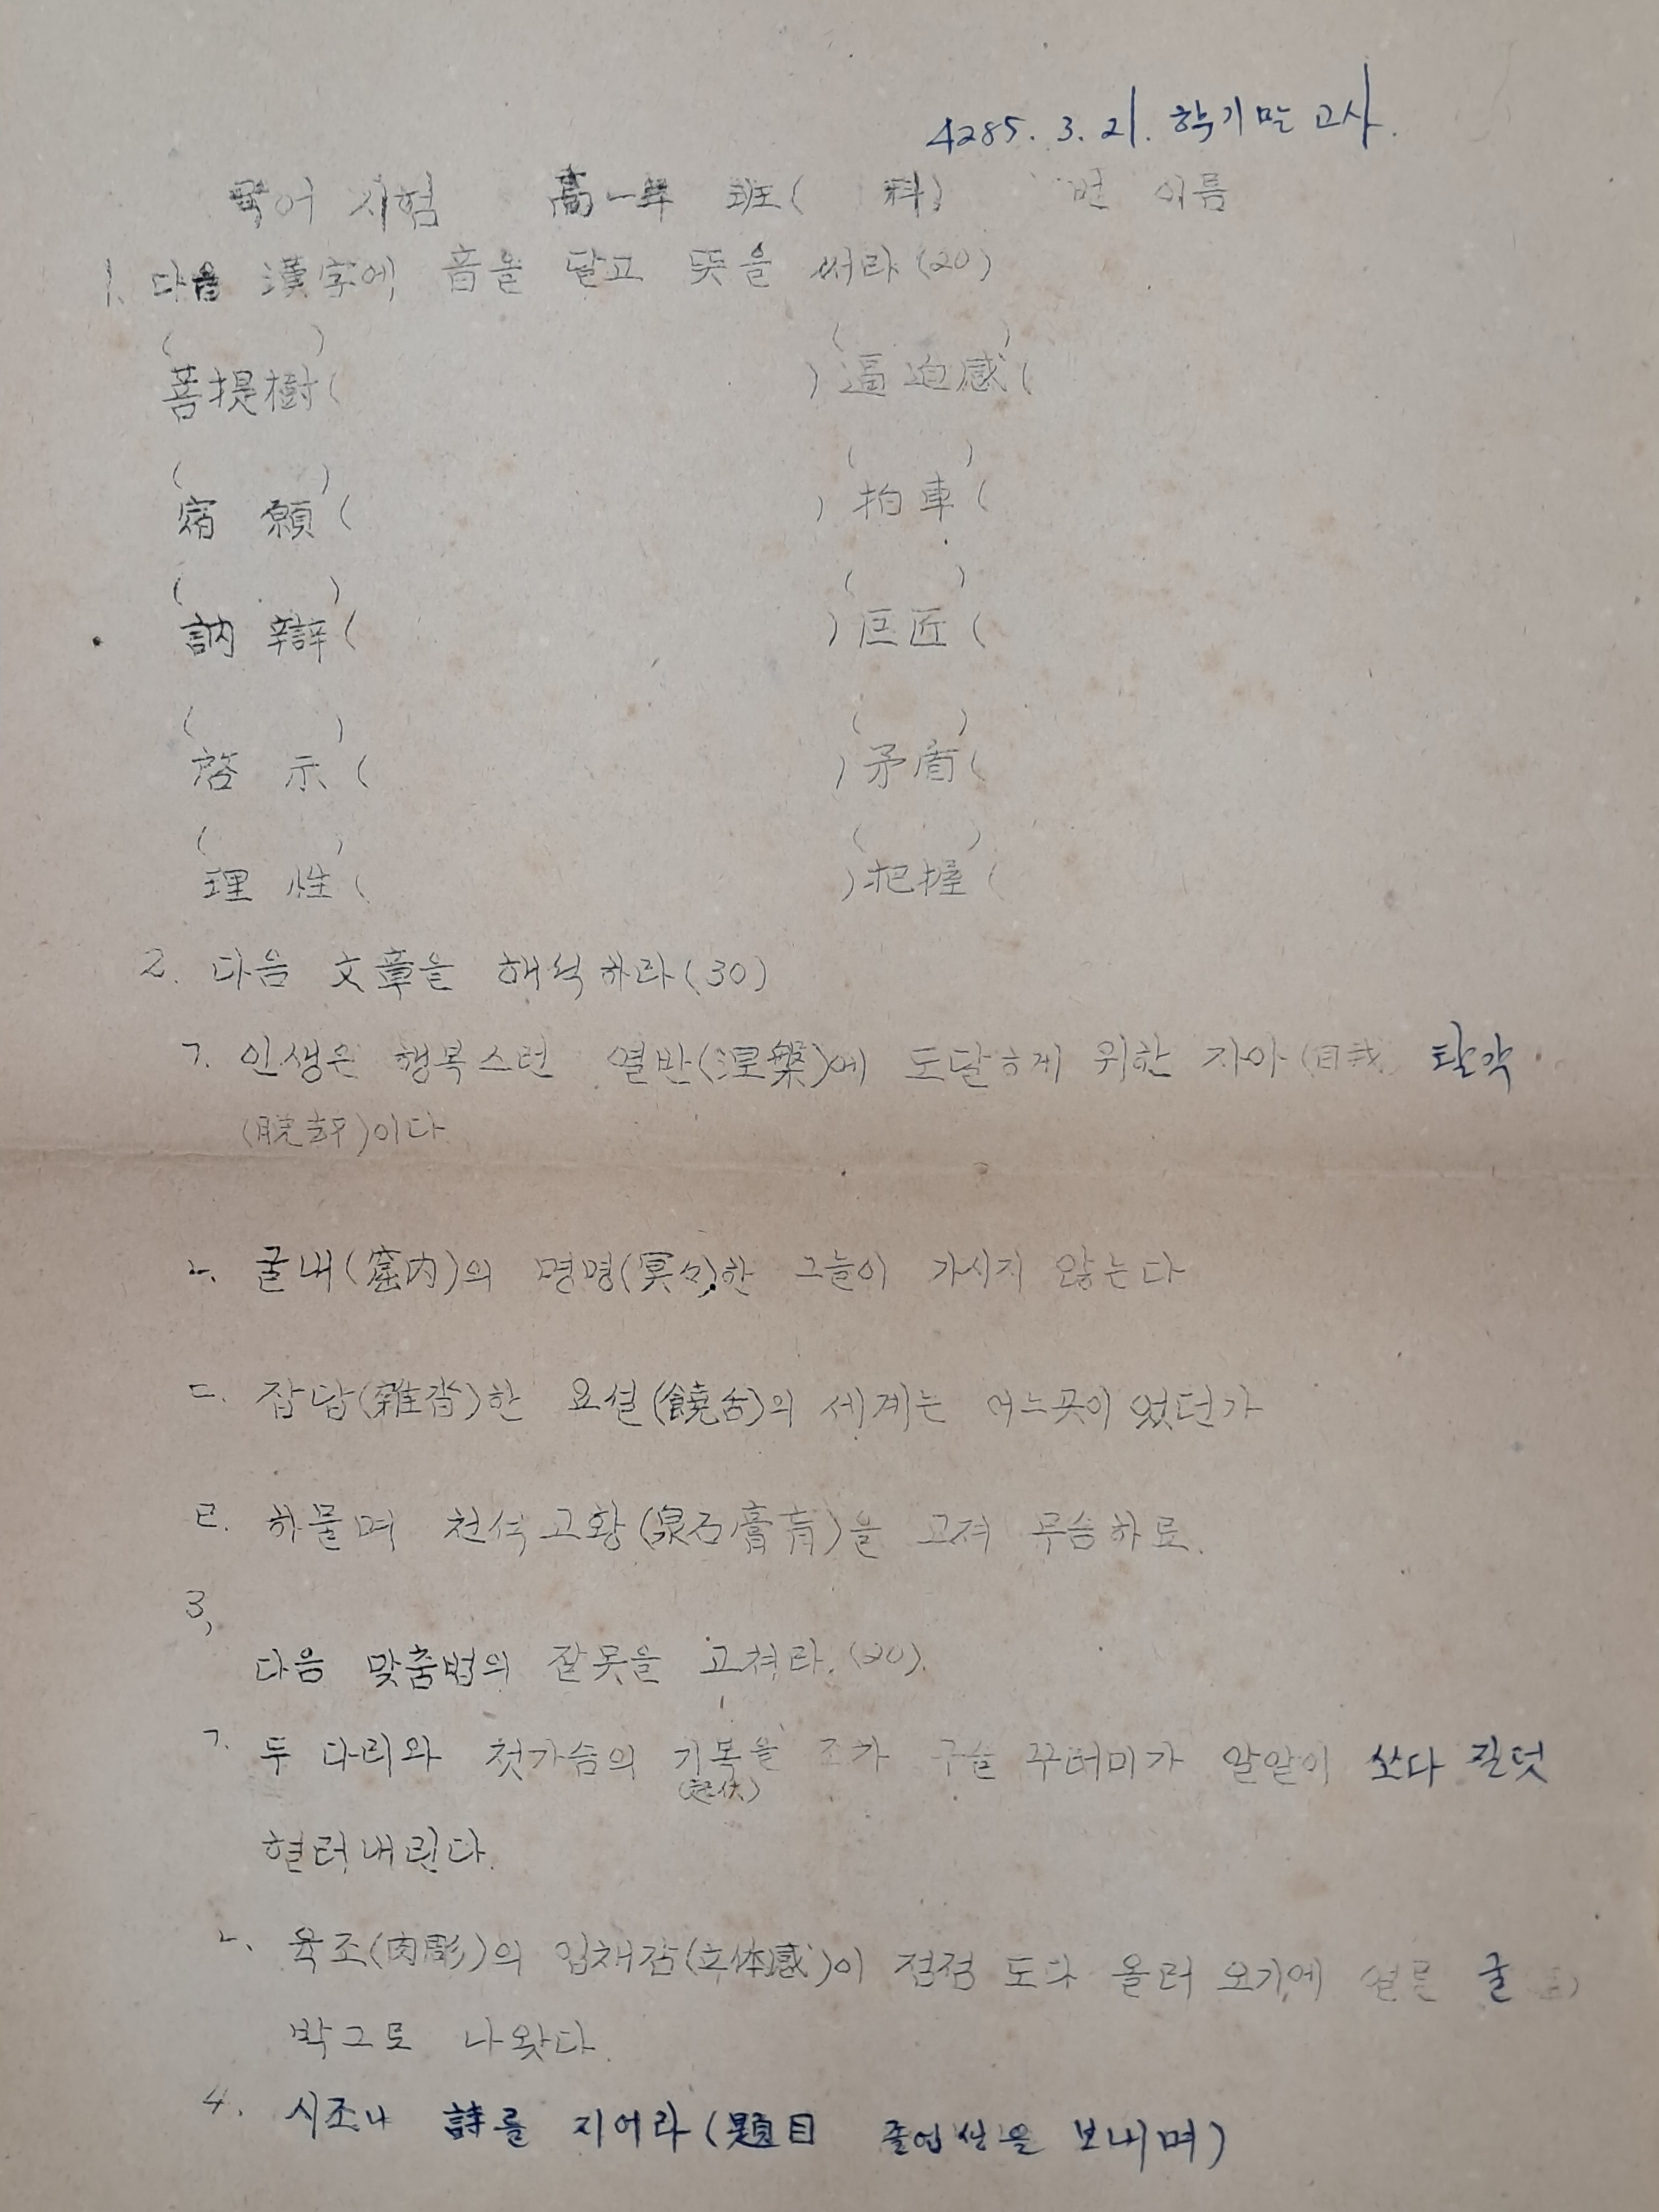 4285. 3. 21. 학기말 고사.
국어 시험 高一年 班( 科) 번 이름
1. 다음 漢字에 音을 달고 뜻을 써라 (20)
( ) ( )
菩提樹( ) 逼迫感(
( ) ( )
宿 願( ) 拍車(
( ) ( )
訥 辯( ) 巨匠(
( ) ( )
啓 示( ) 矛盾(
( ) ( )
理 性( ) 把握(
2. 다음 文章을 해석하라(30)
ㄱ. 인생은 행복스런 열반(涅槃)에 도달하게 위한 자아(自我) 탈각
이다
ㄴ. 굴내(窟内)의 명명(冥々)한 그늘이 가시지 않는다
ㄷ. 잡답(雜沓)한 요설(饒舌)의 세계는 어느곳이 었던가
ㄹ. 하물며 천석고황(泉石膏肓)을 고쳐 무슴하료.
3,
다음 맞춤법의 잘못을 고쳐라. (20).
ㄱ. 두 다리와 첫가슴의 기복을 조가 구슬 꾸터미가 알알이 쏘다 질덧
(起伏)
헐터내린다.
ㄴ. 육조(肉彫)의 입채감(立体感)이 점점 도다 올러 오기에 얼른 굴
박그로 나왓다.
4. 시조나 詩를 지어라 (題目 졸업생을 보내며)